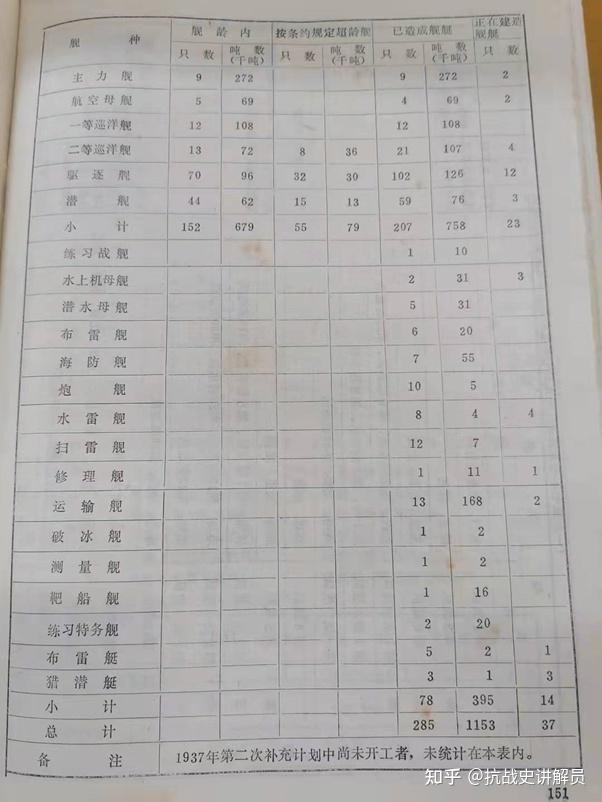 舰种 舰龄内 按条约规定超龄舰 已造成舰艇 正在建造舰艇
只数 吨数(千吨) 只数 吨数(千吨) 只数 吨数(千吨) 只数
主力舰 9 272 9 272 2
航空母舰 5 69 4 69 2
一等巡洋舰 12 108 12 108
二等巡洋舰 13 72 8 36 21 107 4
驱逐舰 70 96 32 30 102 126 12
潜舰 44 62 15 13 59 76 3
小计 152 679 55 79 207 758 23
练习战舰 1 10
水上机母舰 2 31 3
潜水母舰 5 31
布雷舰 6 20
海防舰 7 55
炮舰 10 5
水雷舰 8 4 4
扫雷舰 12 7
修理舰 1 11 1
运输舰 13 168 2
破冰舰 1 2
测量舰 1 2
靶船舰 1 16
练习特务舰 2 20
布雷艇 5 2 1
猎潜艇 3 1 3
小计 78 395 14
总计 285 1153 37
备注 1937年第二次补充计划中尚未开工者，未统计在本表内。
知乎 @抗战史讲解员
151